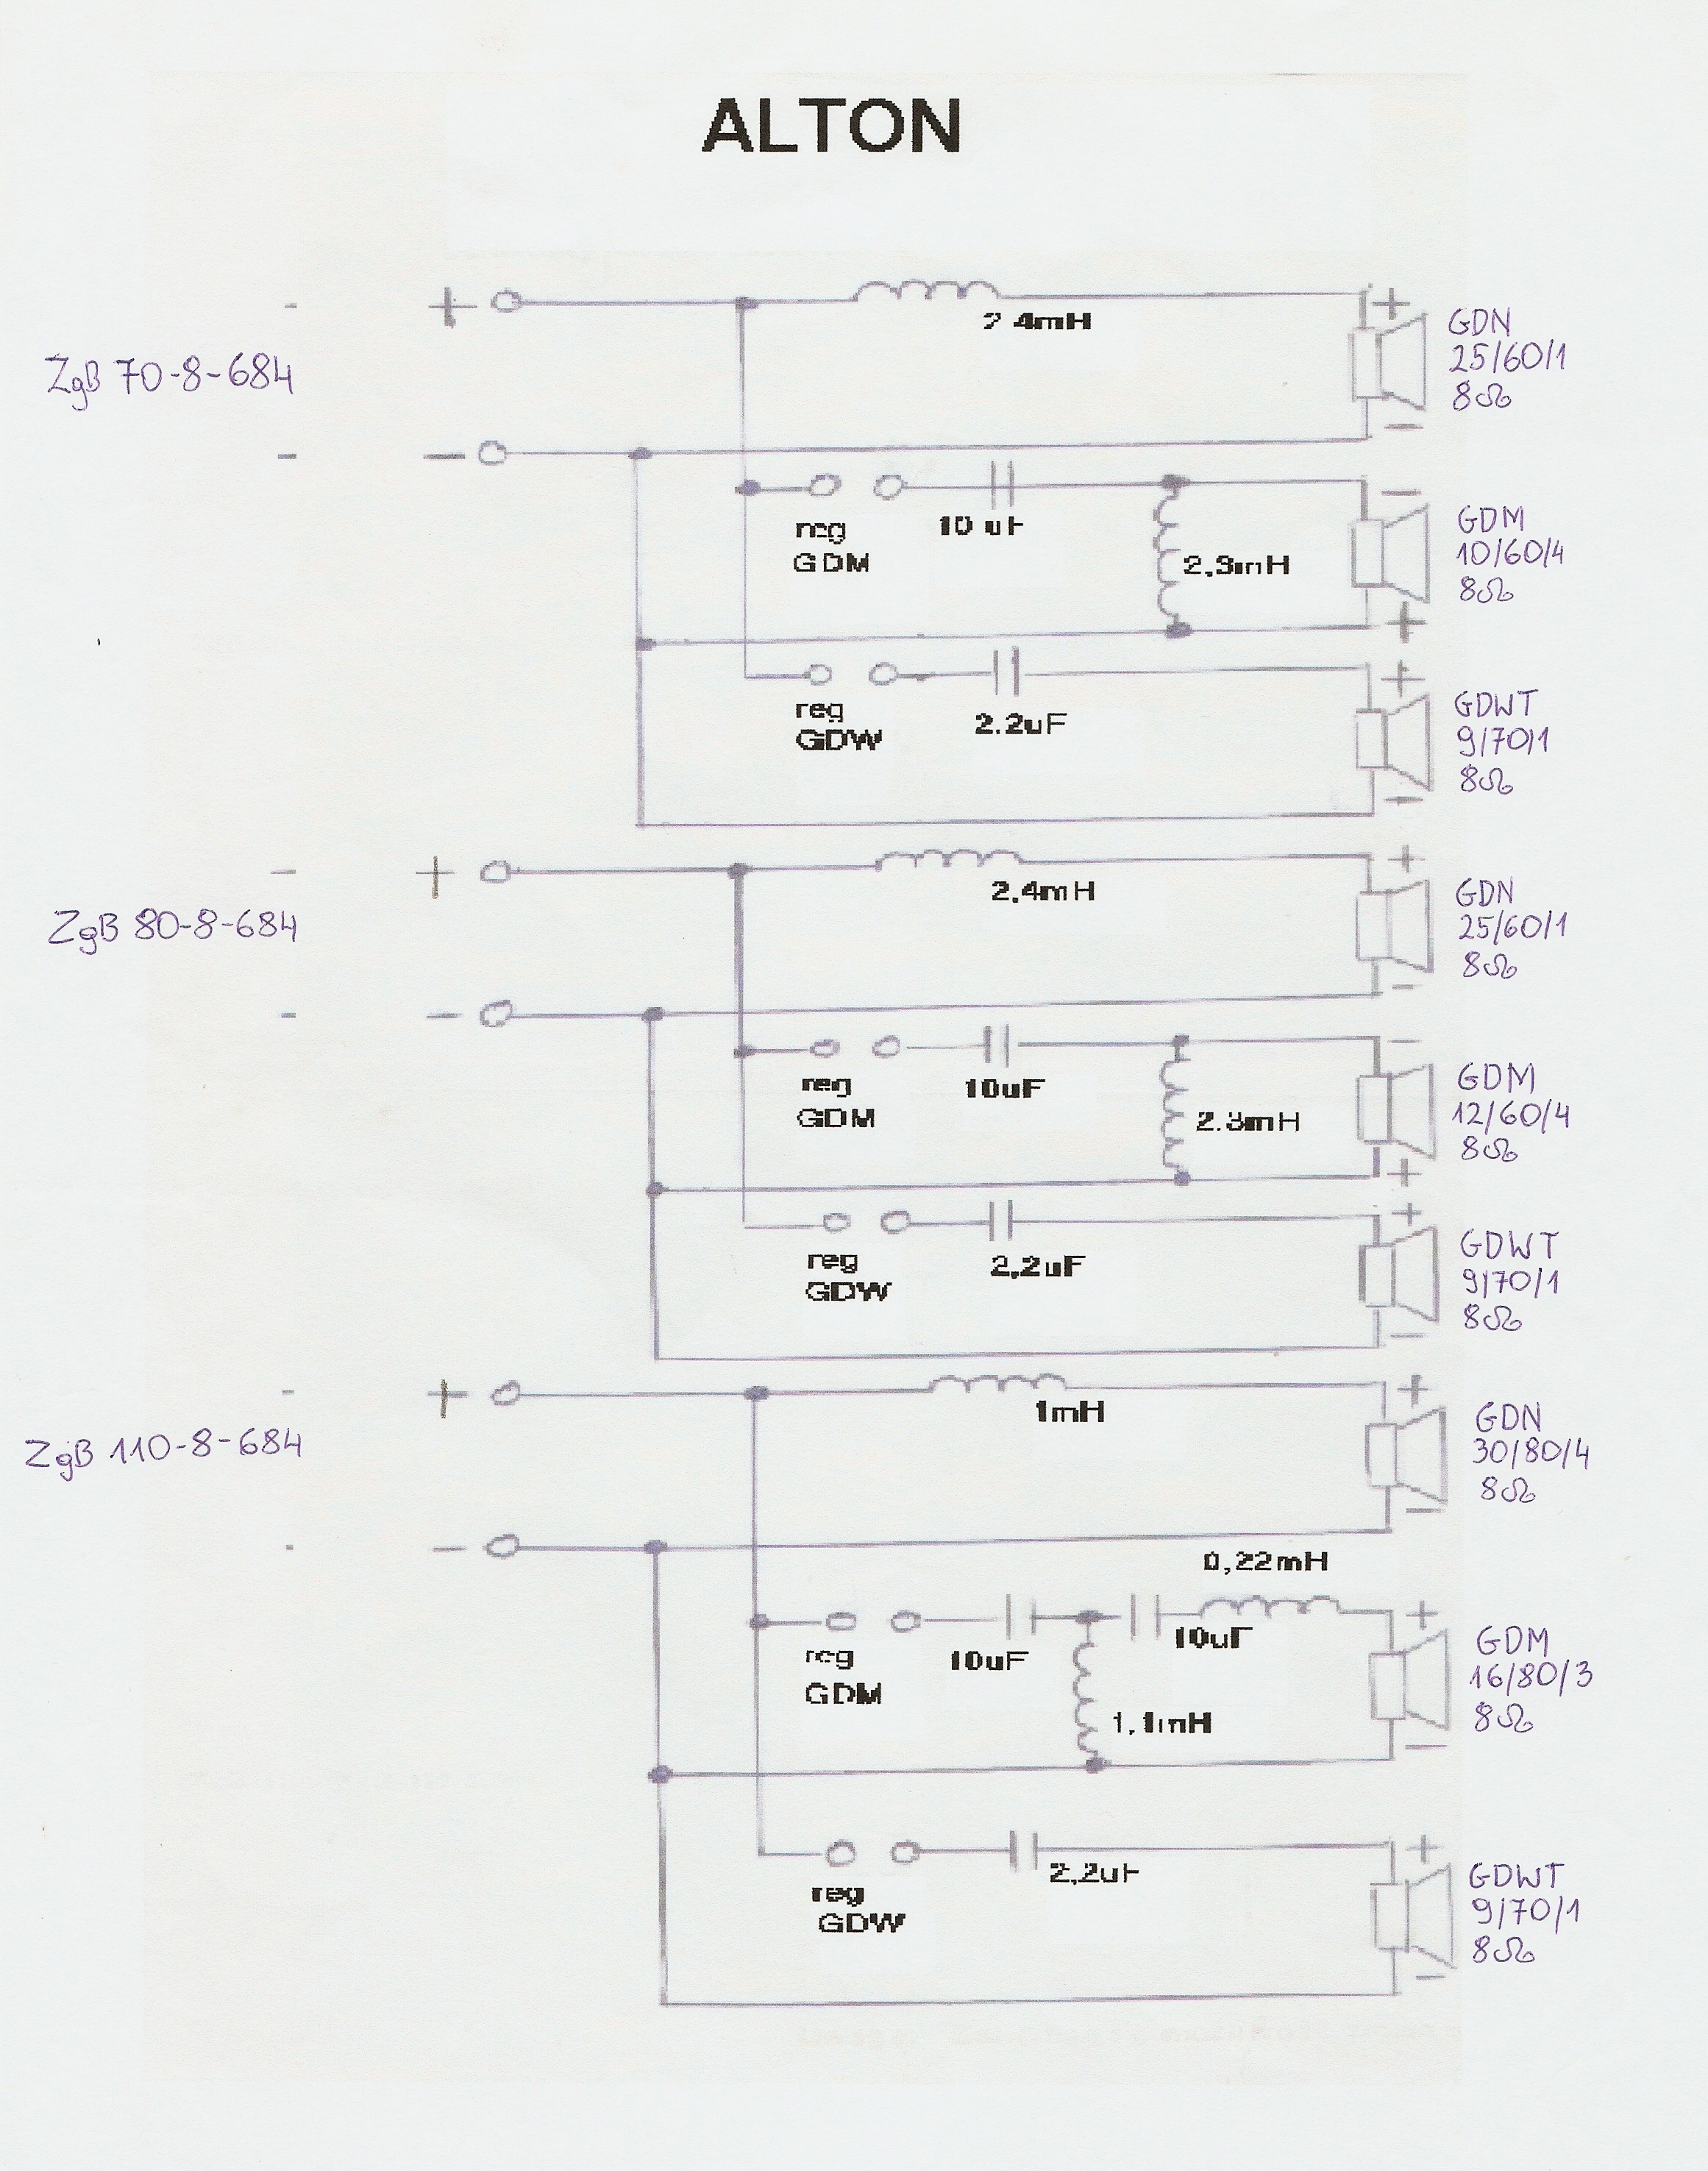 ALTON
+
2 4mH
+
GDN
25/60/1
8Ω
ZgB 70-8-684
-
-
10 uF
reg
GDM
2,3mH
-
GDM
10/60/4
8Ω
+
reg
GDW
2.2uF
+
GDWT
9/70/1
8Ω
-
+
2,4mH
+
GDN
25/60/1
8Ω
ZgB 80-8-684
-
-
reg
GDM
10uF
2.3mH
-
GDM
12/60/4
8Ω
+
reg
GDW
2,2uF
+
GDWT
9/70/1
8Ω
-
+
1mH
+
GDN
30/80/4
8Ω
ZgB 110-8-684
-
-
0,22mH
reg
GDM
10uF
10uF
1,1mH
+
GDM
16/80/3
8Ω
-
reg
GDW
2,2uF
+
GDWT
9/70/1
8Ω
-